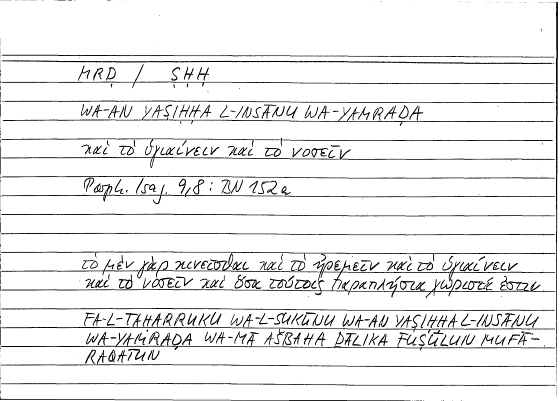 MRḌ / ṢḤḤ
WA-AN YAṢIḤḤA L-INSĀNU WA-YAMRAḌA
καὶ τὸ ὑγιαίνειν καὶ τὸ νοσεῖν
Porph. Isag. 9,8 : BN 152a
τὸ μὲν γὰρ κινεῖσθαι καὶ τὸ ἠρεμεῖν καὶ τὸ ὑγιαίνειν
καὶ τὸ νοσεῖν καὶ ὅσα τούτοις παραπλήσια χωριστά ἐστιν
FA-L-TAḤARRUKU WA-L-SUKŪNU WA-AN YAṢIḤḤA L-INSĀNU
WA-YAMRAḌA WA-MĀ AŠBAHA ḎĀLIKA FUṢŪLUN MUFĀ-
RAQATUN